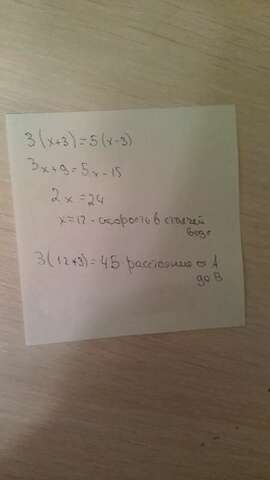 3(x+3)=5(x-3)
3x+9=5x-15
2x=24
x=12-скорость в стоячей
воде
3(12+3)=45 расстояние от А
до В